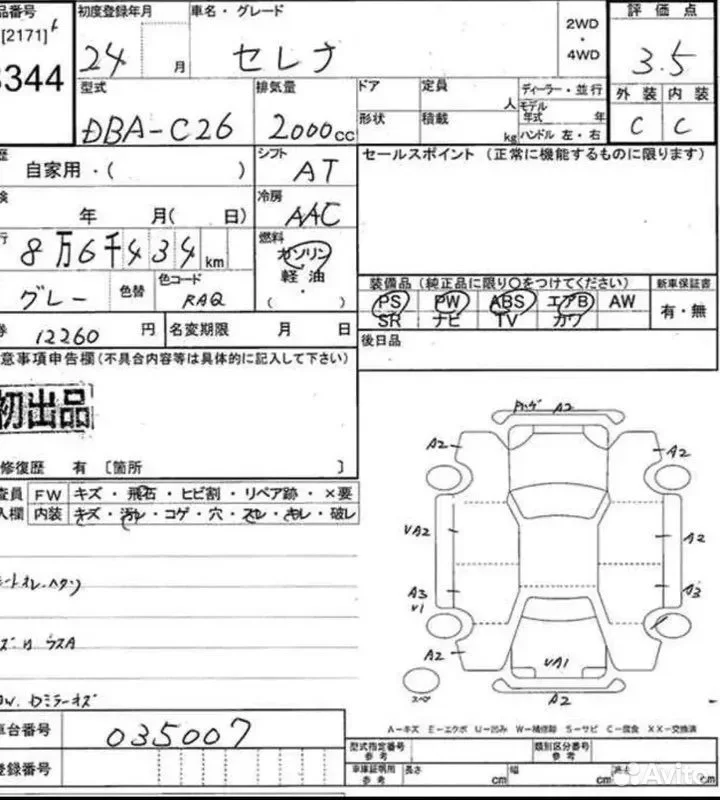 品番号 初度登録年月 車名・グレード 2WD・4WD 評価点
[2171]
3344 24 月 セレナ 3.5
型式 排気量 ドア 定員 人 ディーラー・並行 外装 内装
モデル年式 年
DBA-C26 2000cc 形状 積載 kg ハンドル 左・右 C C
歴 自家用・( ) シフト AT セールスポイント(正常に機能するものに限ります)
検 年 月( 日) 冷房 AAC
行 8万6千434km 燃料 ガソリン 軽油 ( ・ )
グレー 色替 色コード RAQ
装備品(純正品に限り○をつけてください) 新車保証書
PS PW ABS エアB AW 有・無
SR ナビ TV カワ
券 12260円 名変期限 月 日 後日品
意事項申告欄(不具合内容等は具体的に記入して下さい)
初出品
修復歴 有 [箇所 ]
査員 FW キズ・飛石・ヒビ割・リペア跡・×要
入欄 内装 キズ・汚レ・コゲ・穴・スレ・キレ・破レ
A2
A2 A2
VA2 A2
A3 A3
V1
A2
VA1
スペア
A2
ウスA
A-キズ E-エクボ U-凹み W-補修跡 S-サビ C-腐食 XX-交換済
車台番号 035007
型式指定番号 参考 類別区分番号 参考
登録番号
車庫証明用 参考 長さ cm 幅 cm 高さ cm
Avito